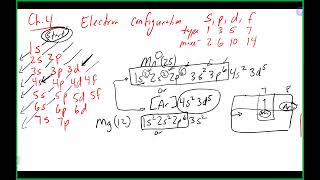 Ch.4 Electron Configuration S, p, d, f
type 1 3 5 7
max 2 6 10 14
Start
1s
2s 2p
3s 3p 3d
4s 4p 4d 4f
5s 5p 5d 5f
6s 6p 6d
7s 7p
Mn(25)
1s² 2s² 2p⁶ 3s² 3p⁶ 4s² 3d⁵
or
[Ar] 4s² 3d⁵
Mg(12) 1s² 2s² 2p⁶ 3s²
or